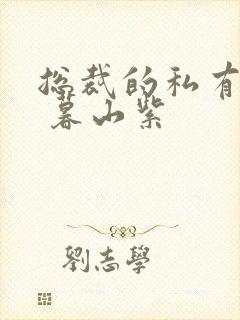 总裁的私有
暮山紫
劉志學